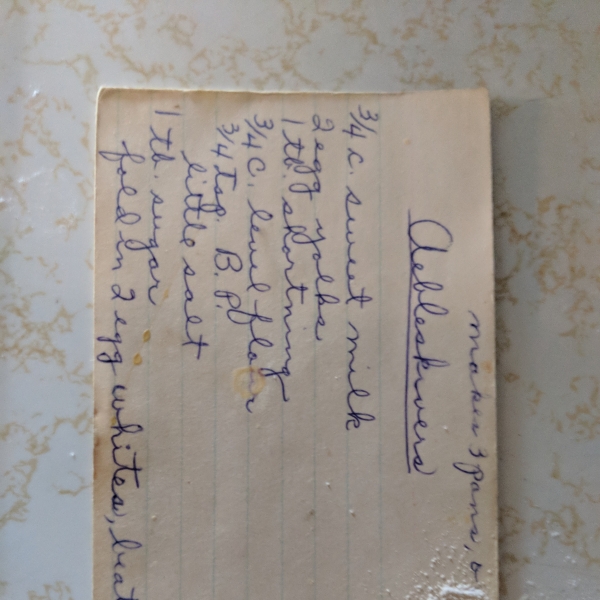 makes 3 pans,
Aebleskivers
3/4 c. sweet milk
2 egg yolks
1 tb. shortning
3/4 c. level flour
3/4 tsp. B.P.
little salt
1 tb. sugar
fold in 2 egg whites, beat